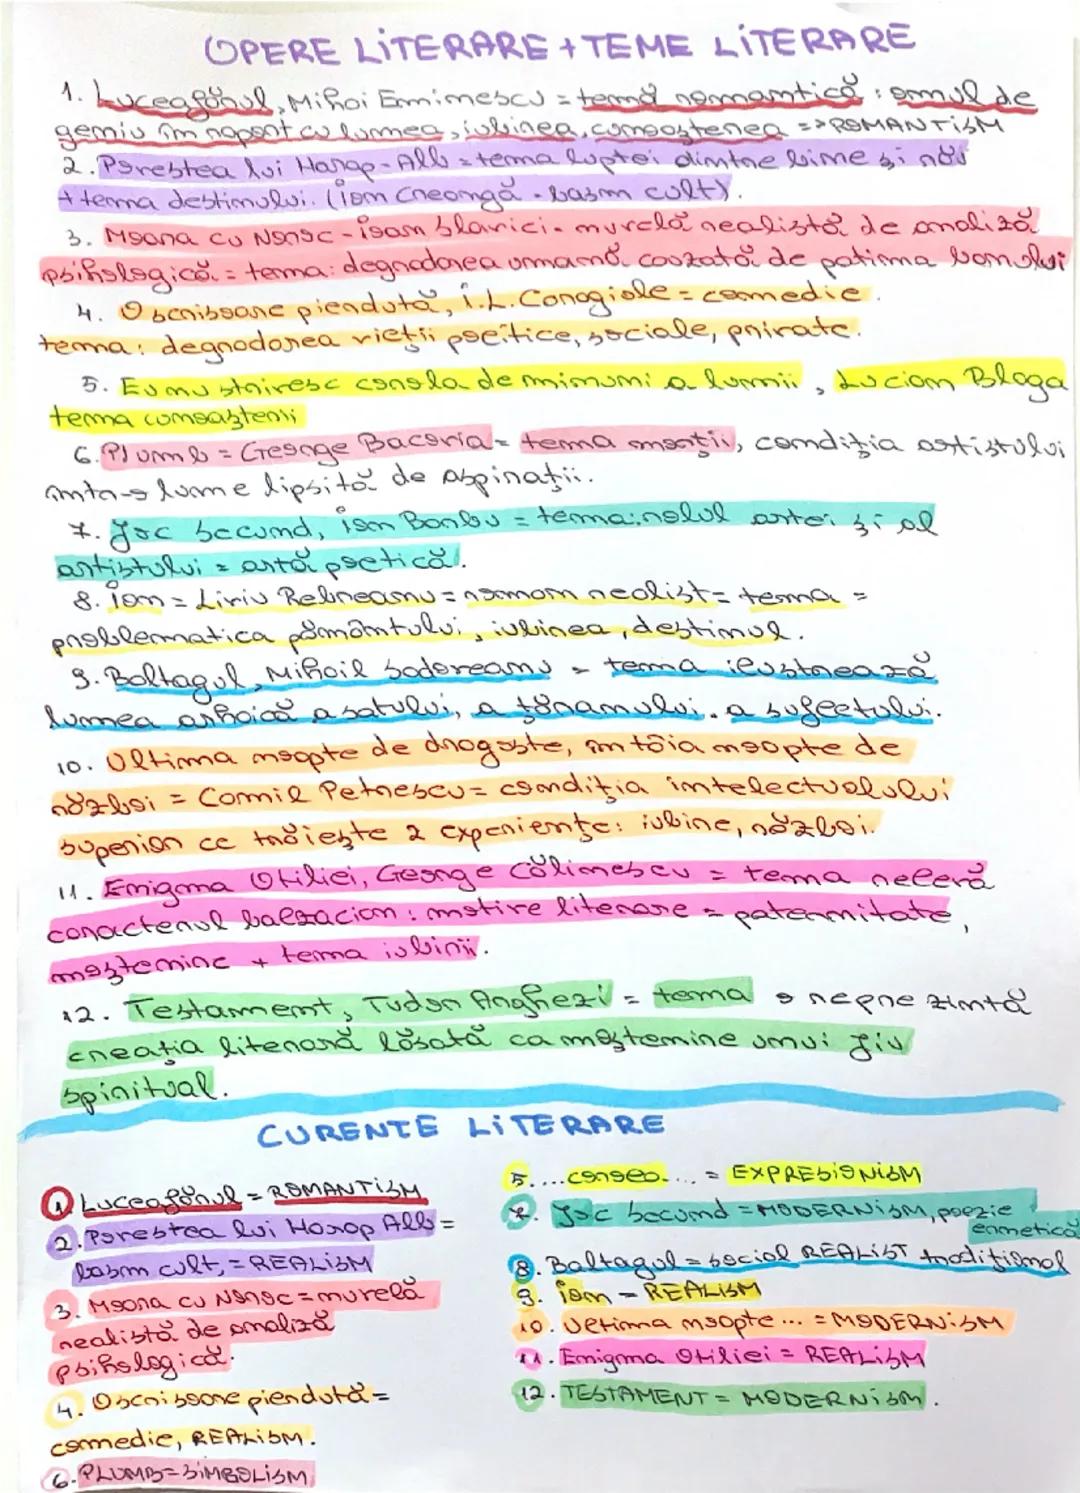 OPERE LITERARE + TEME LITERARE
1. Luceafărul, Mihai Eminescu = temă romantică: omul de
geniu în raport cu lumea, iubirea, cunoașterea => ROMANTISM
2. Povestea lui Harap-Alb = tema luptei dintre bine și rău
+ tema destinului. (Ion Creangă - basm cult).
3. Moara cu Noroc - Ioan Slavici - nuvelă realistă de analiză
psihologică = tema: degradarea umană cauzată de patima banului
4. O scrisoare pierdută, I.L. Caragiale = comedie.
tema: degradarea vieții politice, sociale, private.
5. Eu nu strivesc corola de minuni a lumii, Lucian Blaga
tema cunoașterii
6. Plumb = George Bacovia = tema morții, condiția artistului
într-o lume lipsită de aspirații.
7. Joc secund, Ion Barbu = tema: rolul artei și al
artistului = artă poetică.
8. Ion = Liviu Rebreanu = roman realist = tema =
problematica pământului, iubirea, destinul.
9. Baltagul, Mihail Sadoveanu = tema ilustrează
lumea arhaică a satului, a țăranului, a sufletului.
10. Ultima noapte de dragoste, întâia noapte de
război = Camil Petrescu = condiția intelectualului
superior ce trăiește 2 experiențe: iubire, război.
11. Enigma Otiliei, George Călinescu = tema relevă
caracterul balzacian: motive literare = paternitate,
moștenire + tema iubirii.
12. Testament, Tudor Arghezi = tema o reprezintă
creația literară lăsată ca moștenire unui fiu
spiritual.
CURENTE LITERARE
1 Luceafărul = ROMANTISM
2. Povestea lui Harap Alb =
basm cult, = REALISM
3. Moara cu Noroc = nuvelă
realistă de analiză
psihologică.
4. O scrisoare pierdută =
comedie, REALISM.
6. PLUMB = SIMBOLISM
5. ...corola.... = EXPRESIONISM
7. Joc secund = MODERNISM, poezie
ermetică
8. Baltagul = social REALIST tradițional
9. Ion - REALISM
10. Ultima noapte ... = MODERNISM
11. Enigma Otiliei = REALISM
12. TESTAMENT = MODERNISM.